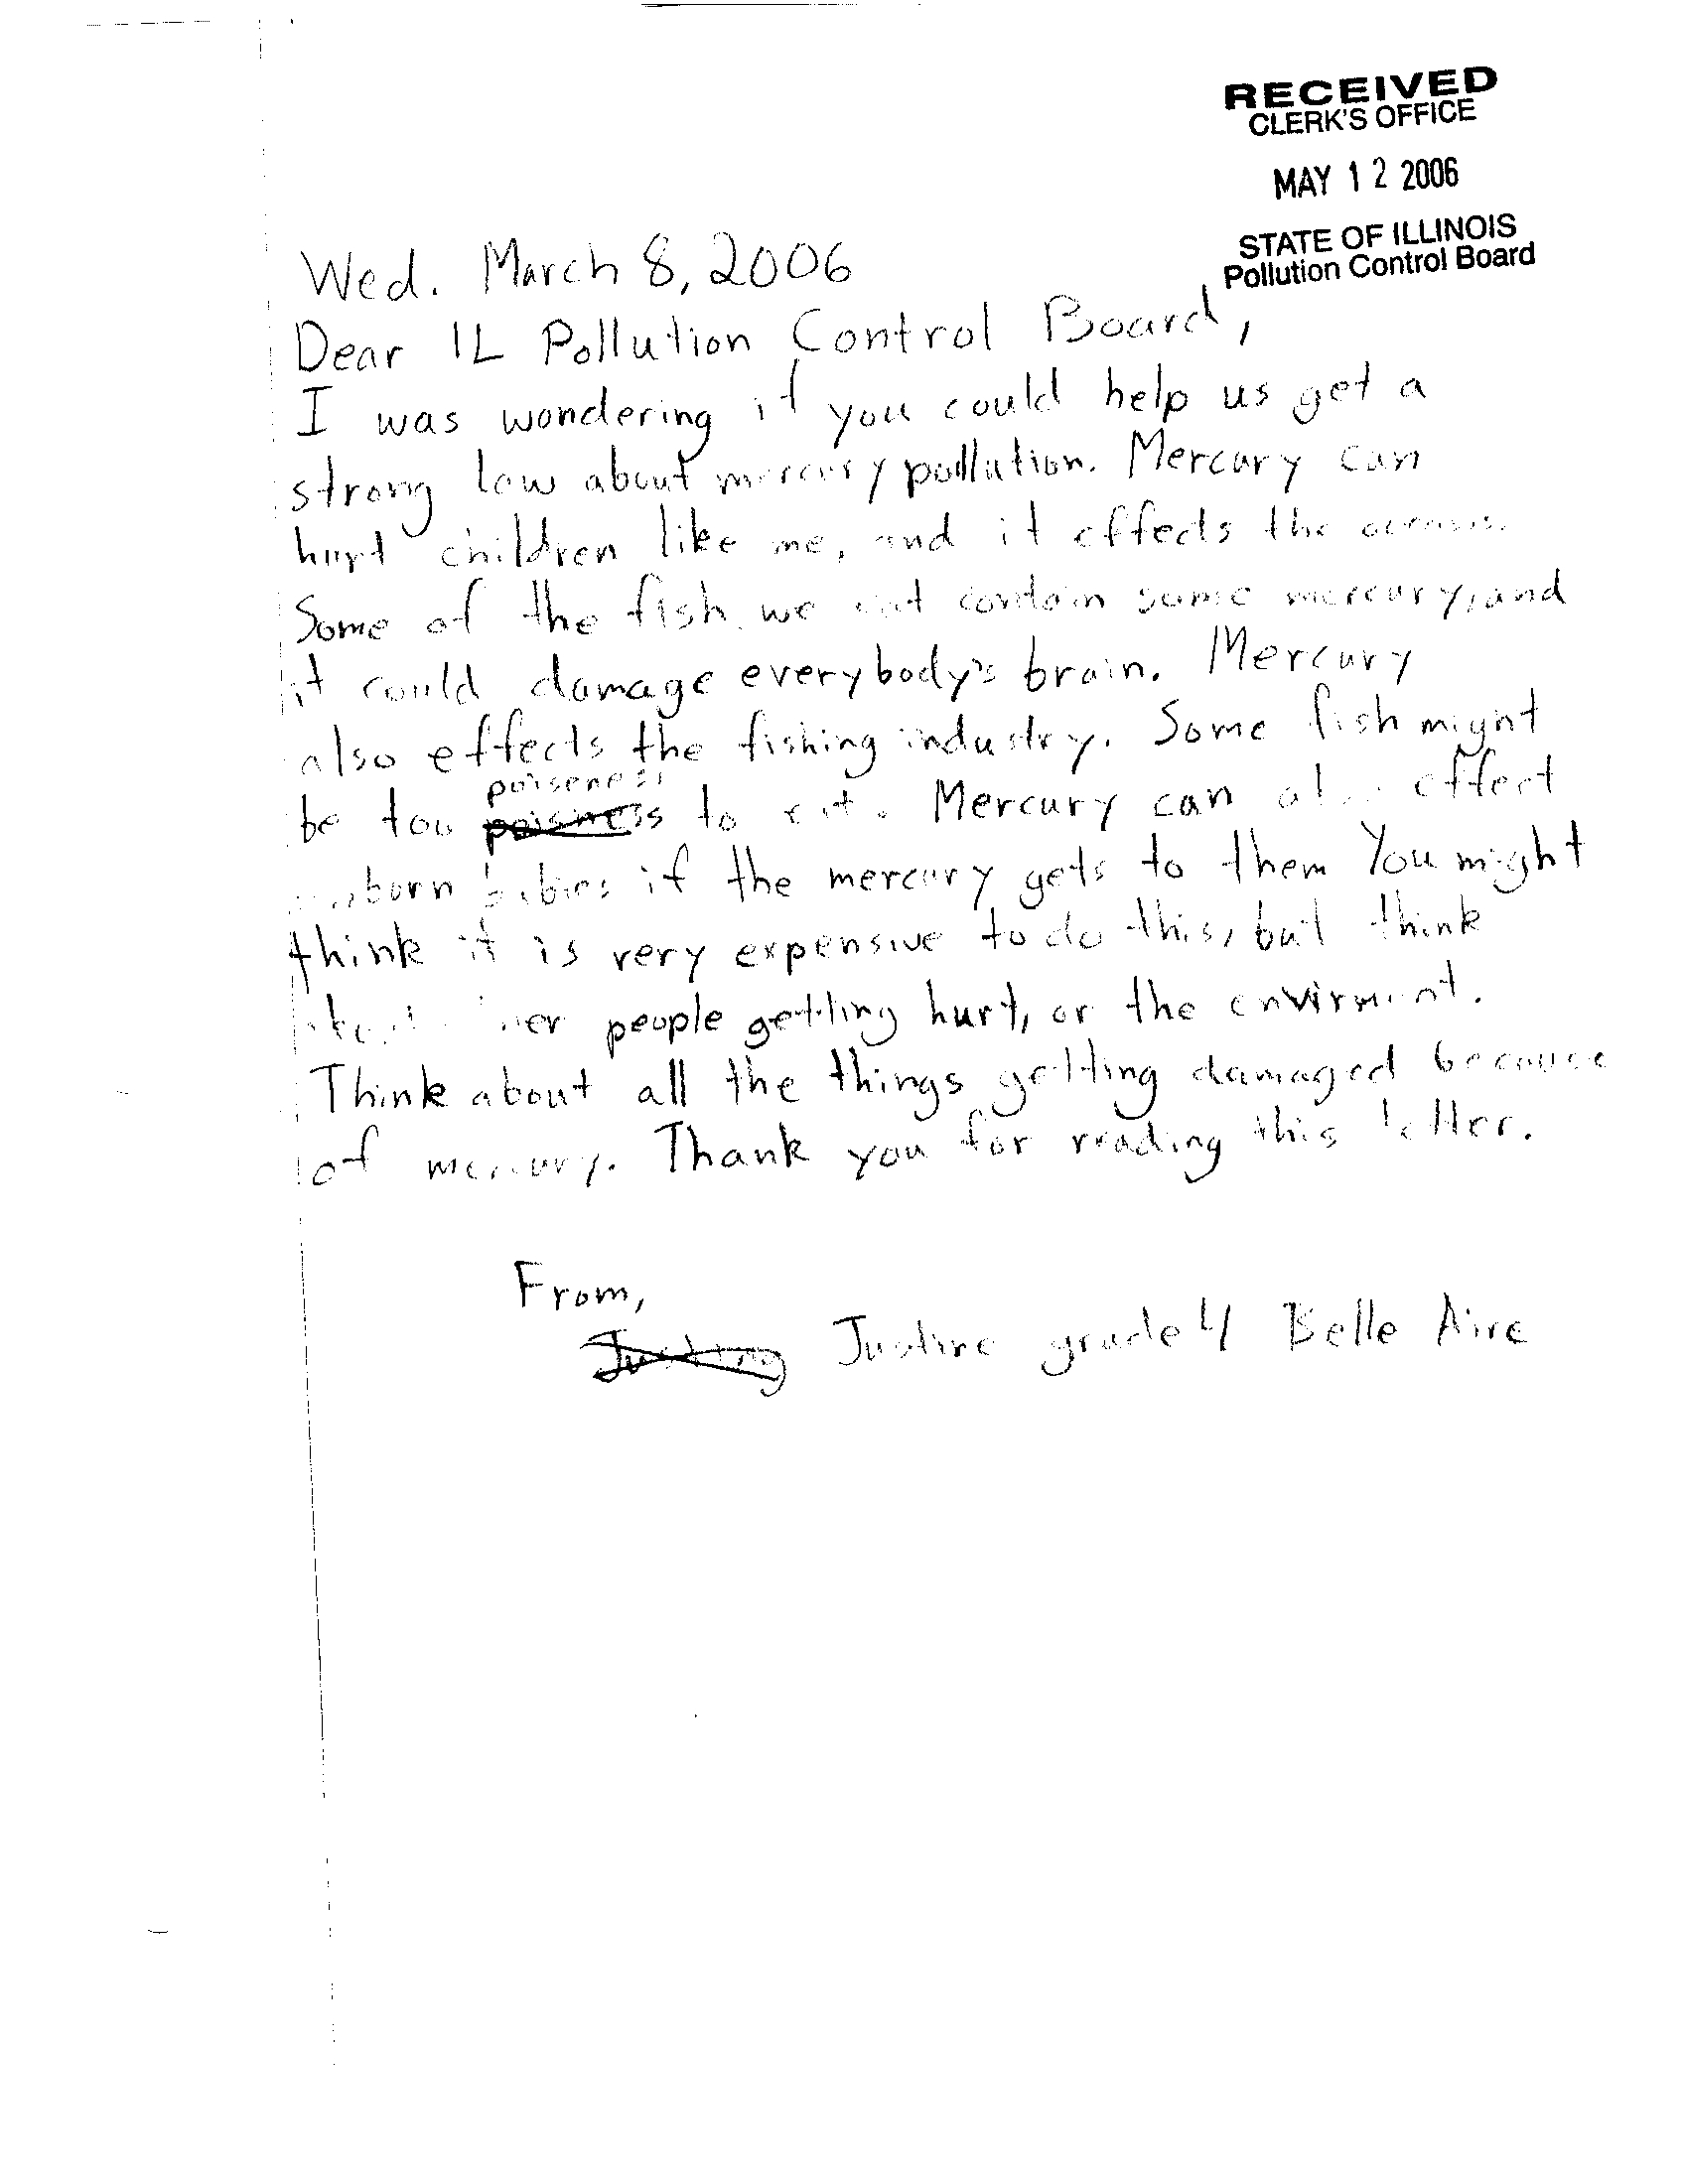 RECEIVED
CLERK'S OFFICE
MAY 12 2006
STATE OF ILLINOIS
Pollution Control Board
Wed. March 8, 2006
Dear IL Pollution Control Board,
I was wondering if you could help us get a
strong law about mercury pollution. Mercury can
hurt children like me, and it effects the oceans.
Some of the fish we eat contain some mercury, and
it could damage everybody's brain. Mercury
also effects the fishing industry. Some fish might
be too poiseness to eat. Mercury can also effect
born babies if the mercury gets to them You might
think it is very expensive to do this, but think
people getting hurt, or the envirment.
Think about all the things getting damaged because
of mercury. Thank you for reading this letter.
From,
Justine grade 4 Belle Aire